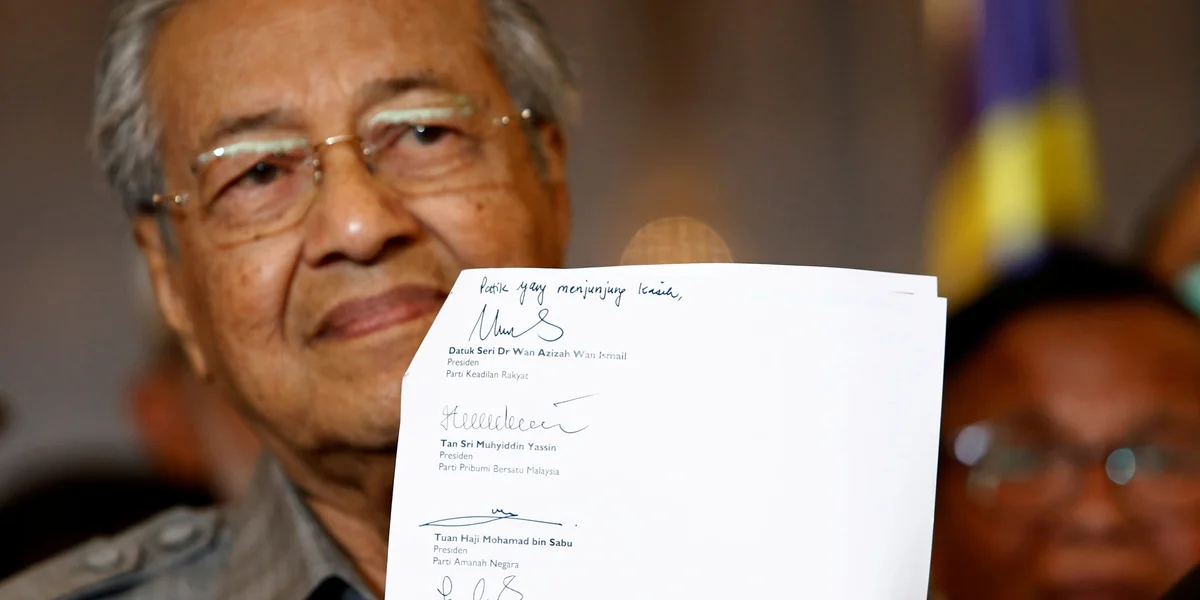 Patik yang menjunjung kasih,
Datuk Seri Dr Wan Azizah Wan Ismail
Presiden
Parti Keadilan Rakyat
Tan Sri Muhyiddin Yassin
Presiden
Parti Pribumi Bersatu Malaysia
Tuan Haji Mohamad bin Sabu
Presiden
Parti Amanah Negara